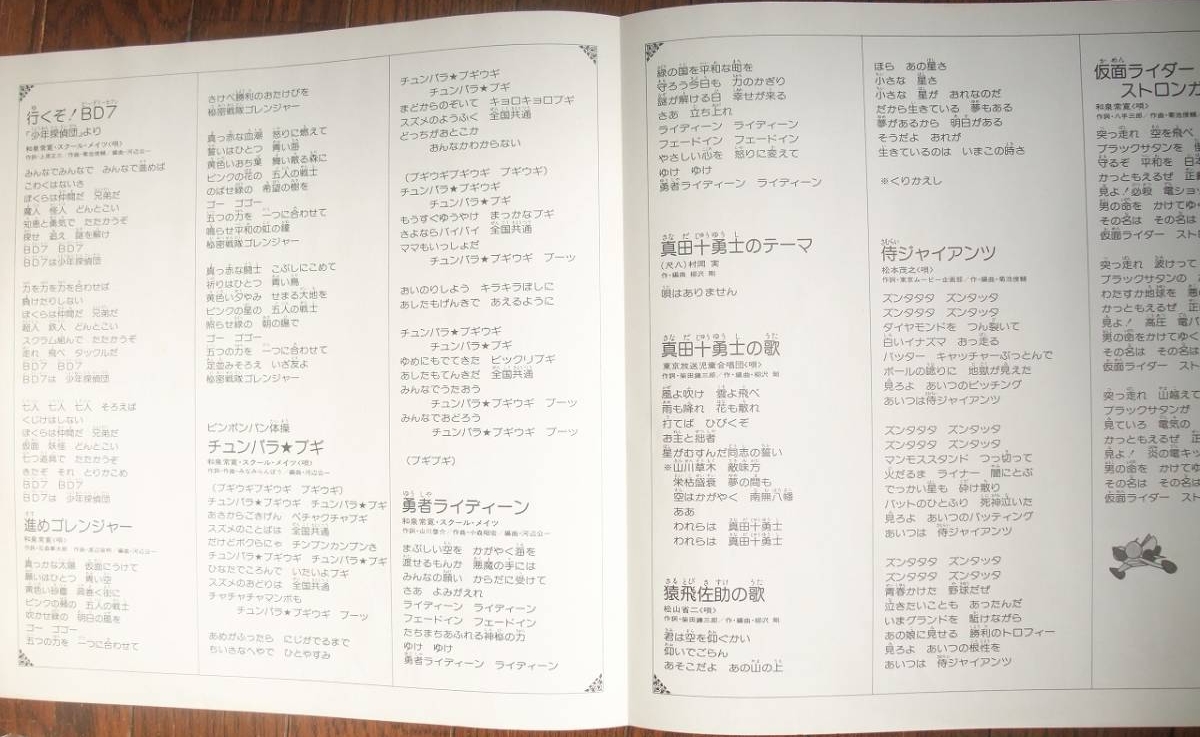 行くぞ!BD7
「少年探偵団」より
和泉常寛・スクール・メイツ(唄)
みんなでみんなで みんなで進めば
こわくはないさ
ぼくらは仲間だ 兄弟だ
魔人 怪人 どんとこい
知恵と勇気で たたかうぞ
探せ 追え 謎を解け
BD7 BD7
BD7は少年探偵団
力を力を力を合わせば
負けたりしない
ぼくらは仲間だ 兄弟だ
超人 鉄人 どんとこい
スクラム組んで たたかうぞ
走れ 飛べ タックルだ
BD7 BD7
BD7は 少年探偵団
七人 七人 七人 そろえば
くじけはしない
ぼくらは仲間だ 兄弟だ
仮面 妖怪 どんとこい
七つ道具で たたかうぞ
きたぞ それ とりかこめ
BD7 BD7
BD7は 少年探偵団
進めゴレンジャー
和泉常寛(唄)
真っかな太陽 仮面にうけて
願いはひとつ 青い空
黄色い砂塵 渦巻く街に
ピンクの頬の 五人の戦士
吹かせ緑の 明日の風を
ゴー ゴゴー
五つの力を 一つに合わせて
さけべ勝利のおたけびを
秘密戦隊ゴレンジャー
真っ赤な血潮 怒りに燃えて
誓いはひとつ 青い海
黄色いおち葉 舞い散る森に
ピンクの花の 五人の戦士
のばせ緑の 希望の樹を
ゴー ゴゴー
五つの力を 一つに合わせて
鳴らせ平和の虹の鐘
秘密戦隊ゴレンジャー
真っ赤な闘士 こぶしにこめて
祈りはひとつ 青い鳥
黄色い夕やみ せまる大地を
ピンクの星の 五人の戦士
照らせ緑の 朝の陽で
ゴー ゴゴー
五つの力を 一つに合わせて
足並みそろえ いざ友よ
秘密戦隊ゴレンジャー
ピンポンパン体操
チュンバラ★ブギ
和泉常寛・スクール・メイツ(唄)
(ブギウギブギウギ ブギウギ)
チュンバラ★ブギウギ チュンバラ★ブギ
あさからごきげん ペチャクチャブギ
スズメのことばは 全国共通
だけどボクらにゃ チンプンカンプンさ
チュンバラ★ブギウギ チュンバラ★ブギ
ひなたでころんで いたいよブギ
スズメのおどりは 全国共通
チャチャチャマンボも
チュンバラ★ブギウギ ブーッ
あめがふったら にじがでるまで
ちいさなへやで ひとやすみ
チュンバラ★ブギウギ
チュンバラ★ブギ
まどからのぞいて キョロキョロブギ
スズメのようふく 全国共通
どっちがおとこか
おんなかわからない
(ブギウギブギウギ ブギウギ)
チュンバラ★ブギウギ
チュンバラ★ブギ
もうすぐゆうやけ まっかなブギ
さよならバイバイ 全国共通
ママもいっしょだ
チュンバラ★ブギウギ ブーッ
おいのりしよう キラキラほしに
あしたもげんきで あえるように
チュンバラ★ブギウギ
チュンバラ★ブギ
ゆめにもでてきた ビックリブギ
あしたもてんきだ 全国共通
みんなでうたおう
チュンバラ★ブギウギ ブーッ
みんなでおどろう
チュンバラ★ブギウギ ブーッ
(ブギブギ)
勇者ライディーン
和泉常寛・スクール・メイツ
まぶしい空を かがやく海を
渡せるもんか 悪魔の手には
みんなの願い からだに受けて
さあ よみがえれ
ライディーン ライディーン
フェードイン フェードイン
たちまちあふれる神秘の力
ゆけ ゆけ
勇者ライディーン ライディーン
緑の国を平和な町を
守ろう今日も 力のかぎり
謎が解ける日 幸せ来る
さあ 立ち上れ
ライディーン ライディーン
フェードイン フェードイン
やさしい心を 怒りに変えて
ゆけ ゆけ
勇者ライディーン ライディーン
真田十勇士のテーマ
(尺八)村岡 実
作・編曲 柳沢 剛
唄はありません
真田十勇士の歌
東京放送児童合唱団(唄)
作詞・柴田錬三郎/作・編曲・柳沢 剛
風よ吹け 雲よ飛べ
雨も降れ 花も散れ
打てば ひびくぞ
お主と拙者
星がむすんだ同志の誓い
※山川草木 敵味方
栄枯盛衰 夢の間も
空はかがやく 南無八幡
ああ
われらは 真田十勇士
われらは 真田十勇士
猿飛佐助の歌
松山省二(唄)
作詞・柴田錬三郎/作・編曲・柳沢 剛
君は空を仰ぐかい
仰いでごらん
あそこだよ あの山の上
ほら あの星さ
小さな 星さ
小さな 星が おれなのだ
だから生きている 夢もある
夢があるから 明日がある
そうだよ おれが
生きているのは いまこの時さ
※くりかえし
侍ジャイアンツ
松本茂之(唄)
作詞・東京ムービー企画部/作・編曲・菊池俊輔
ズンタタタ ズンタッタ
ズンタタタ ズンタッタ
ダイヤモンドを つん裂いて
白いイナズマ おっ走る
バッター キャッチャーぶっとんで
ボールの唸りに 地獄が見えた
見ろよ あいつのピッチング
あいつは侍ジャイアンツ
ズンタタタ ズンタッタ
ズンタタタ ズンタッタ
マンモススタンド つっ切って
火だるま ライナー 闇にとぶ
でっかい星も 砕け散り
バットのひとふり 死神泣いた
見ろよ あいつのバッティング
あいつは 侍ジャイアンツ
ズンタタタ ズンタッタ
ズンタタタ ズンタッタ
青春かけた 野球だぜ
泣きたいことも あったんだ
いまグランドを 駆けながら
あの娘に見せる 勝利のトロフィー
見ろよ あいつの根性を
あいつは 侍ジャイアンツ
仮面ライダー
ストロンガ
和泉常寛(唄)
突っ走れ 空を飛べ
ブラックサタンを
守るぞ 平和を 日本
かっともえるぜ 正
見よ!必殺 電ショ
男の命を かけてゆく
その名は その名は
仮面ライダー スト
突っ走れ 波けって
ブラックサタンの
わたすか地球を 悪
かっともえるぜ 正
見よ! 高圧 電パ
男の命をかけてゆく
その名は その名は
仮面ライダー スト
突っ走れ 山越えて
ブラックサタンが
見ていろ 電気の
かっともえるぜ 正
見よ! 炎の電キッ
男の命を かけてゆ
その名は その名は
仮面ライダー スト